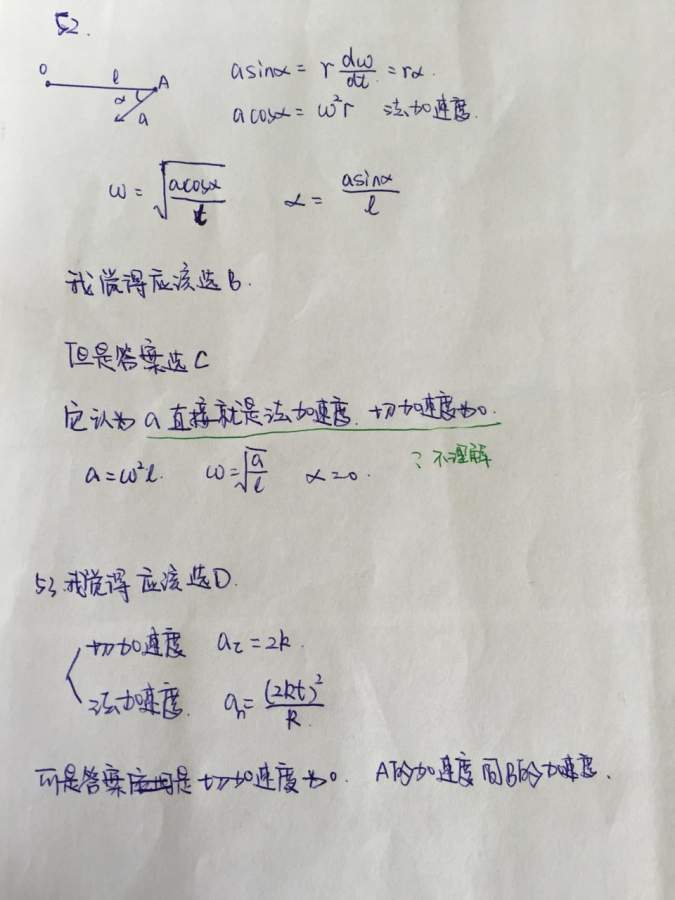 52.
O l A
α a
a sinα = r dω/dt = rα.
a cosα = ω²r 法加速度.
ω = √(a cosα / l) α = a sinα / l
我觉得应该选B.
但是答案选C
它认为a直接就是法加速度. 切加速度为0.
a = ω²l. ω = √(a/l) α = 0.
? 不理解
53.我觉得应该选D.
切加速度 aτ = 2k.
法加速度. an = (2kt)²/R.
可是答案 是切加速度为0. A的加速度同B的加速度.